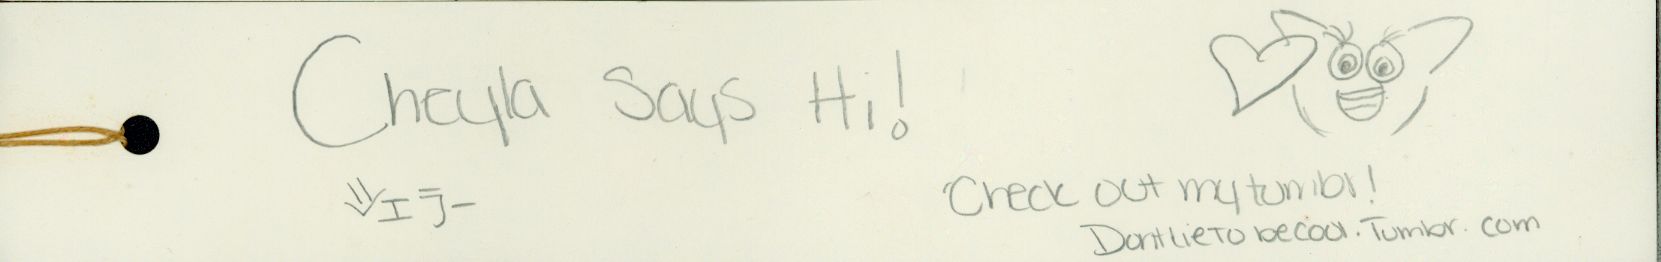 Cheyla Says Hi!
シエラー
Check out my tumblr!
DontLieTobecool.Tumblr.com